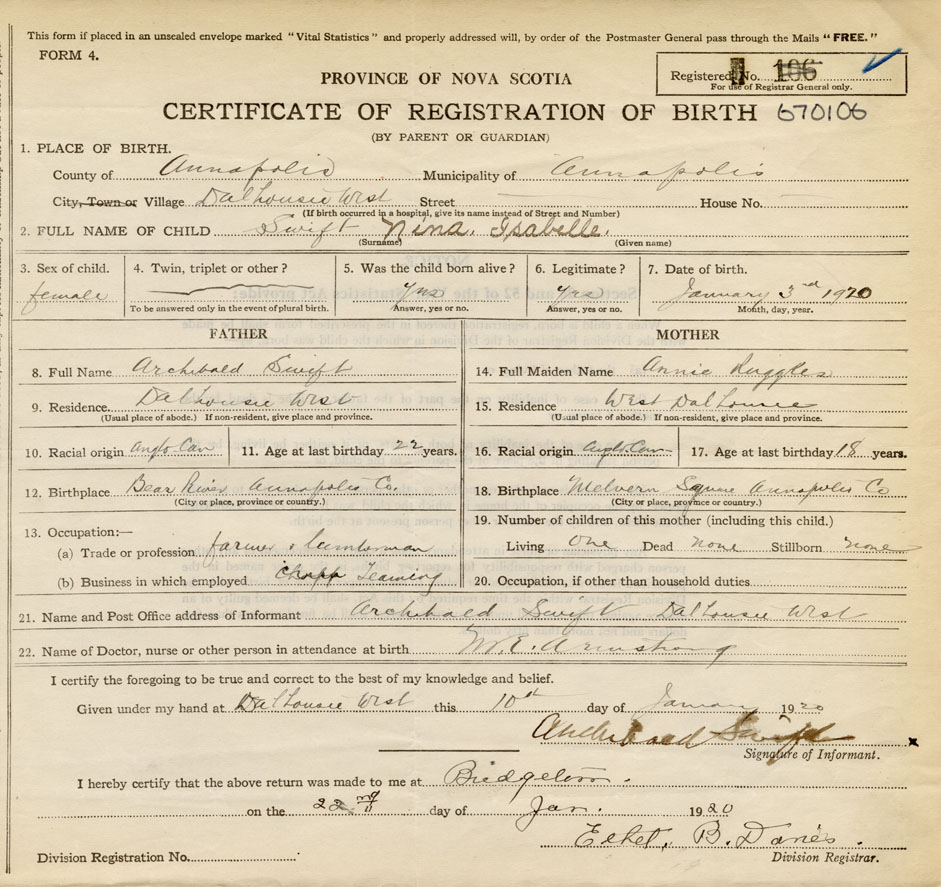 This form if placed in an unsealed envelope marked "Vital Statistics" and properly addressed will, by order of the Postmaster General pass through the Mails "FREE."
FORM 4.
Registered No. 106
For use of Registrar General only.
PROVINCE OF NOVA SCOTIA
CERTIFICATE OF REGISTRATION OF BIRTH 670106
(BY PARENT OR GUARDIAN)
1. PLACE OF BIRTH.
County of Annapolis Municipality of Annapolis
City, Town or Village Dalhousie West Street House No.
(If birth occurred in a hospital, give its name instead of Street and Number)
2. FULL NAME OF CHILD Swift Nina Isabelle.
(Surname) (Given name)
3. Sex of child. 4. Twin, triplet or other? 5. Was the child born alive? 6. Legitimate? 7. Date of birth.
female yes yes January 3rd 1920
To be answered only in the event of plural birth. Answer, yes or no. Answer, yes or no. Month, day, year.
FATHER MOTHER
8. Full Name Archibald Swift 14. Full Maiden Name Annie Ruggles
9. Residence Dalhousie West 15. Residence West Dalhousie
(Usual place of abode.) If non-resident, give place and province. (Usual place of abode.) If non-resident, give place and province.
10. Racial origin Anglo Can 11. Age at last birthday 22 years. 16. Racial origin Anglo. Can 17. Age at last birthday 18 years.
12. Birthplace Bear River Annapolis Co. 18. Birthplace Melvern Square Annapolis Co
(City or place, province or country.) (City or place, province or country.)
13. Occupation:— 19. Number of children of this mother (including this child.)
(a) Trade or profession farmer & lumberman Living One Dead none Stillborn none
(b) Business in which employed Teaming 20. Occupation, if other than household duties
21. Name and Post Office address of Informant Archibald Swift Dalhousie West
22. Name of Doctor, nurse or other person in attendance at birth M.E. Armstrong
I certify the foregoing to be true and correct to the best of my knowledge and belief.
Given under my hand at Dalhousie West this 10th day of January 1920
Archibald Swift
Signature of Informant.
I hereby certify that the above return was made to me at Bridgetown.
on the 22nd day of Jan. 1920
Ethel, B. Davies.
Division Registration No. Division Registrar.